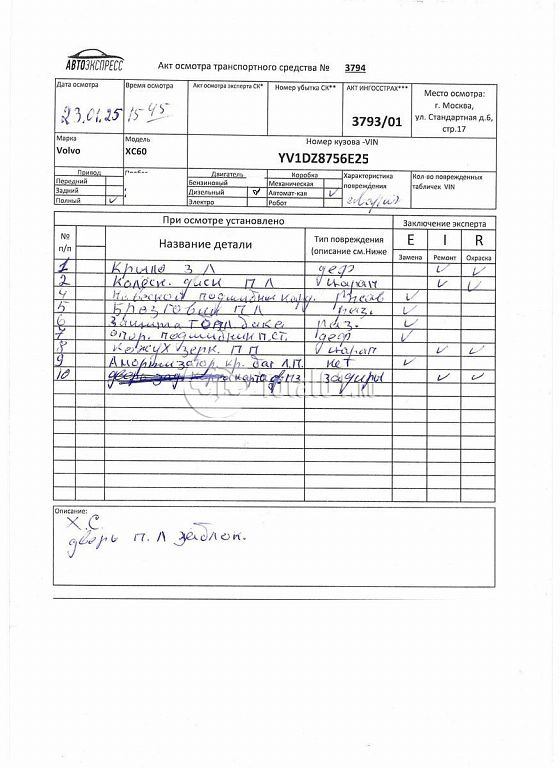 АВТОЭКСПРЕСС
Акт осмотра транспортного средства № 3794
Дата осмотра
Время осмотра
Акт осмотра эксперта СК*
Номер убытка СК**
АКТ ИНГОССТРАХ***
Место осмотра:
г. Москва,
ул. Стандартная д.6,
стр.17
23.01.25
15 45
3793/01
Марка
Модель
Номер кузова -VIN
Volvo
XC60
YV1DZ8756E25
Привод
Двигатель
Коробка
Характеристика повреждения
Кол-во поврежденных табличек VIN
Передний
Бензиновый
Механическая
Задний
Дизельный ✓
Автомат-кая ✓
Полный ✓
Электро
Робот
При осмотре установлено
Заключение эксперта
№ п/п
Название детали
Тип повреждения (описание см.Ниже
E
I
R
Замена
Ремонт
Окраска
1 Крыло З Л деф ✓ ✓
2 Колесн. диски П Л царап ✓ ✓
4 ✓
5 Брызговик П Л раз. ✓
6 Защита топл бака раз. ✓
7 опор. подшибник П.СТ. деф ✓
8 Кожух зерк. П П царап ✓ ✓
9 Амортизатор кр. баг Л.П. нет ✓
10 задиры ✓ ✓
Описание:
Х.С.
дверь П.Л заблок.